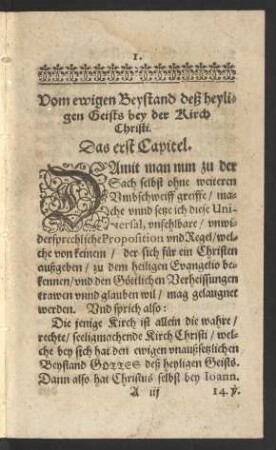 1.
Vom ewigen Beystand deß heyli-
gen Geists bey der Kirch
Christi.
Das erst Capitel.
DAmit man nun zu der
Sach selbst ohne weiteren
Umbschweiff greiffe / ma-
che vnnd setze ich diese Uni-
uersal, vnfehlbare / vnwi-
dersprechliche Proposition vnd Regel / wel-
che von keinem / der sich für ein Christen
außgeben / zu dem heiligen Evangelio be-
kennen / vnd den Göttlichen Verheissungen
trawen vnnd glauben wil / mag gelaugnet
werden. Vnd sprich also:
Die jenige Kirch ist allein die wahre /
rechte / seeligmachende Kirch Christi / wel-
che bey sich hat den ewigen vnaußsetzlichen
Beystand GOTTES deß heyligen Geists.
Dann also hat Christus selbst bey Ioann.
A iij
14. ℣.